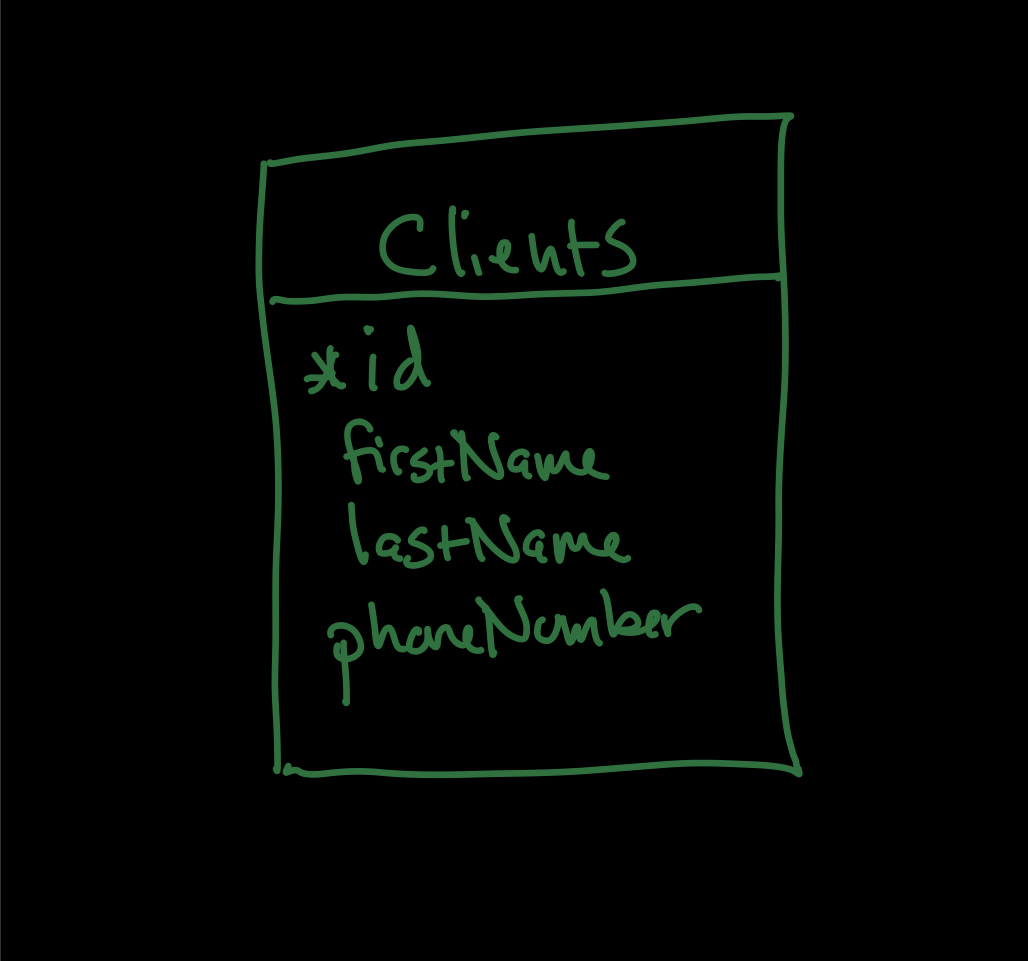 Clients
*id
firstName
lastName
phoneNumber